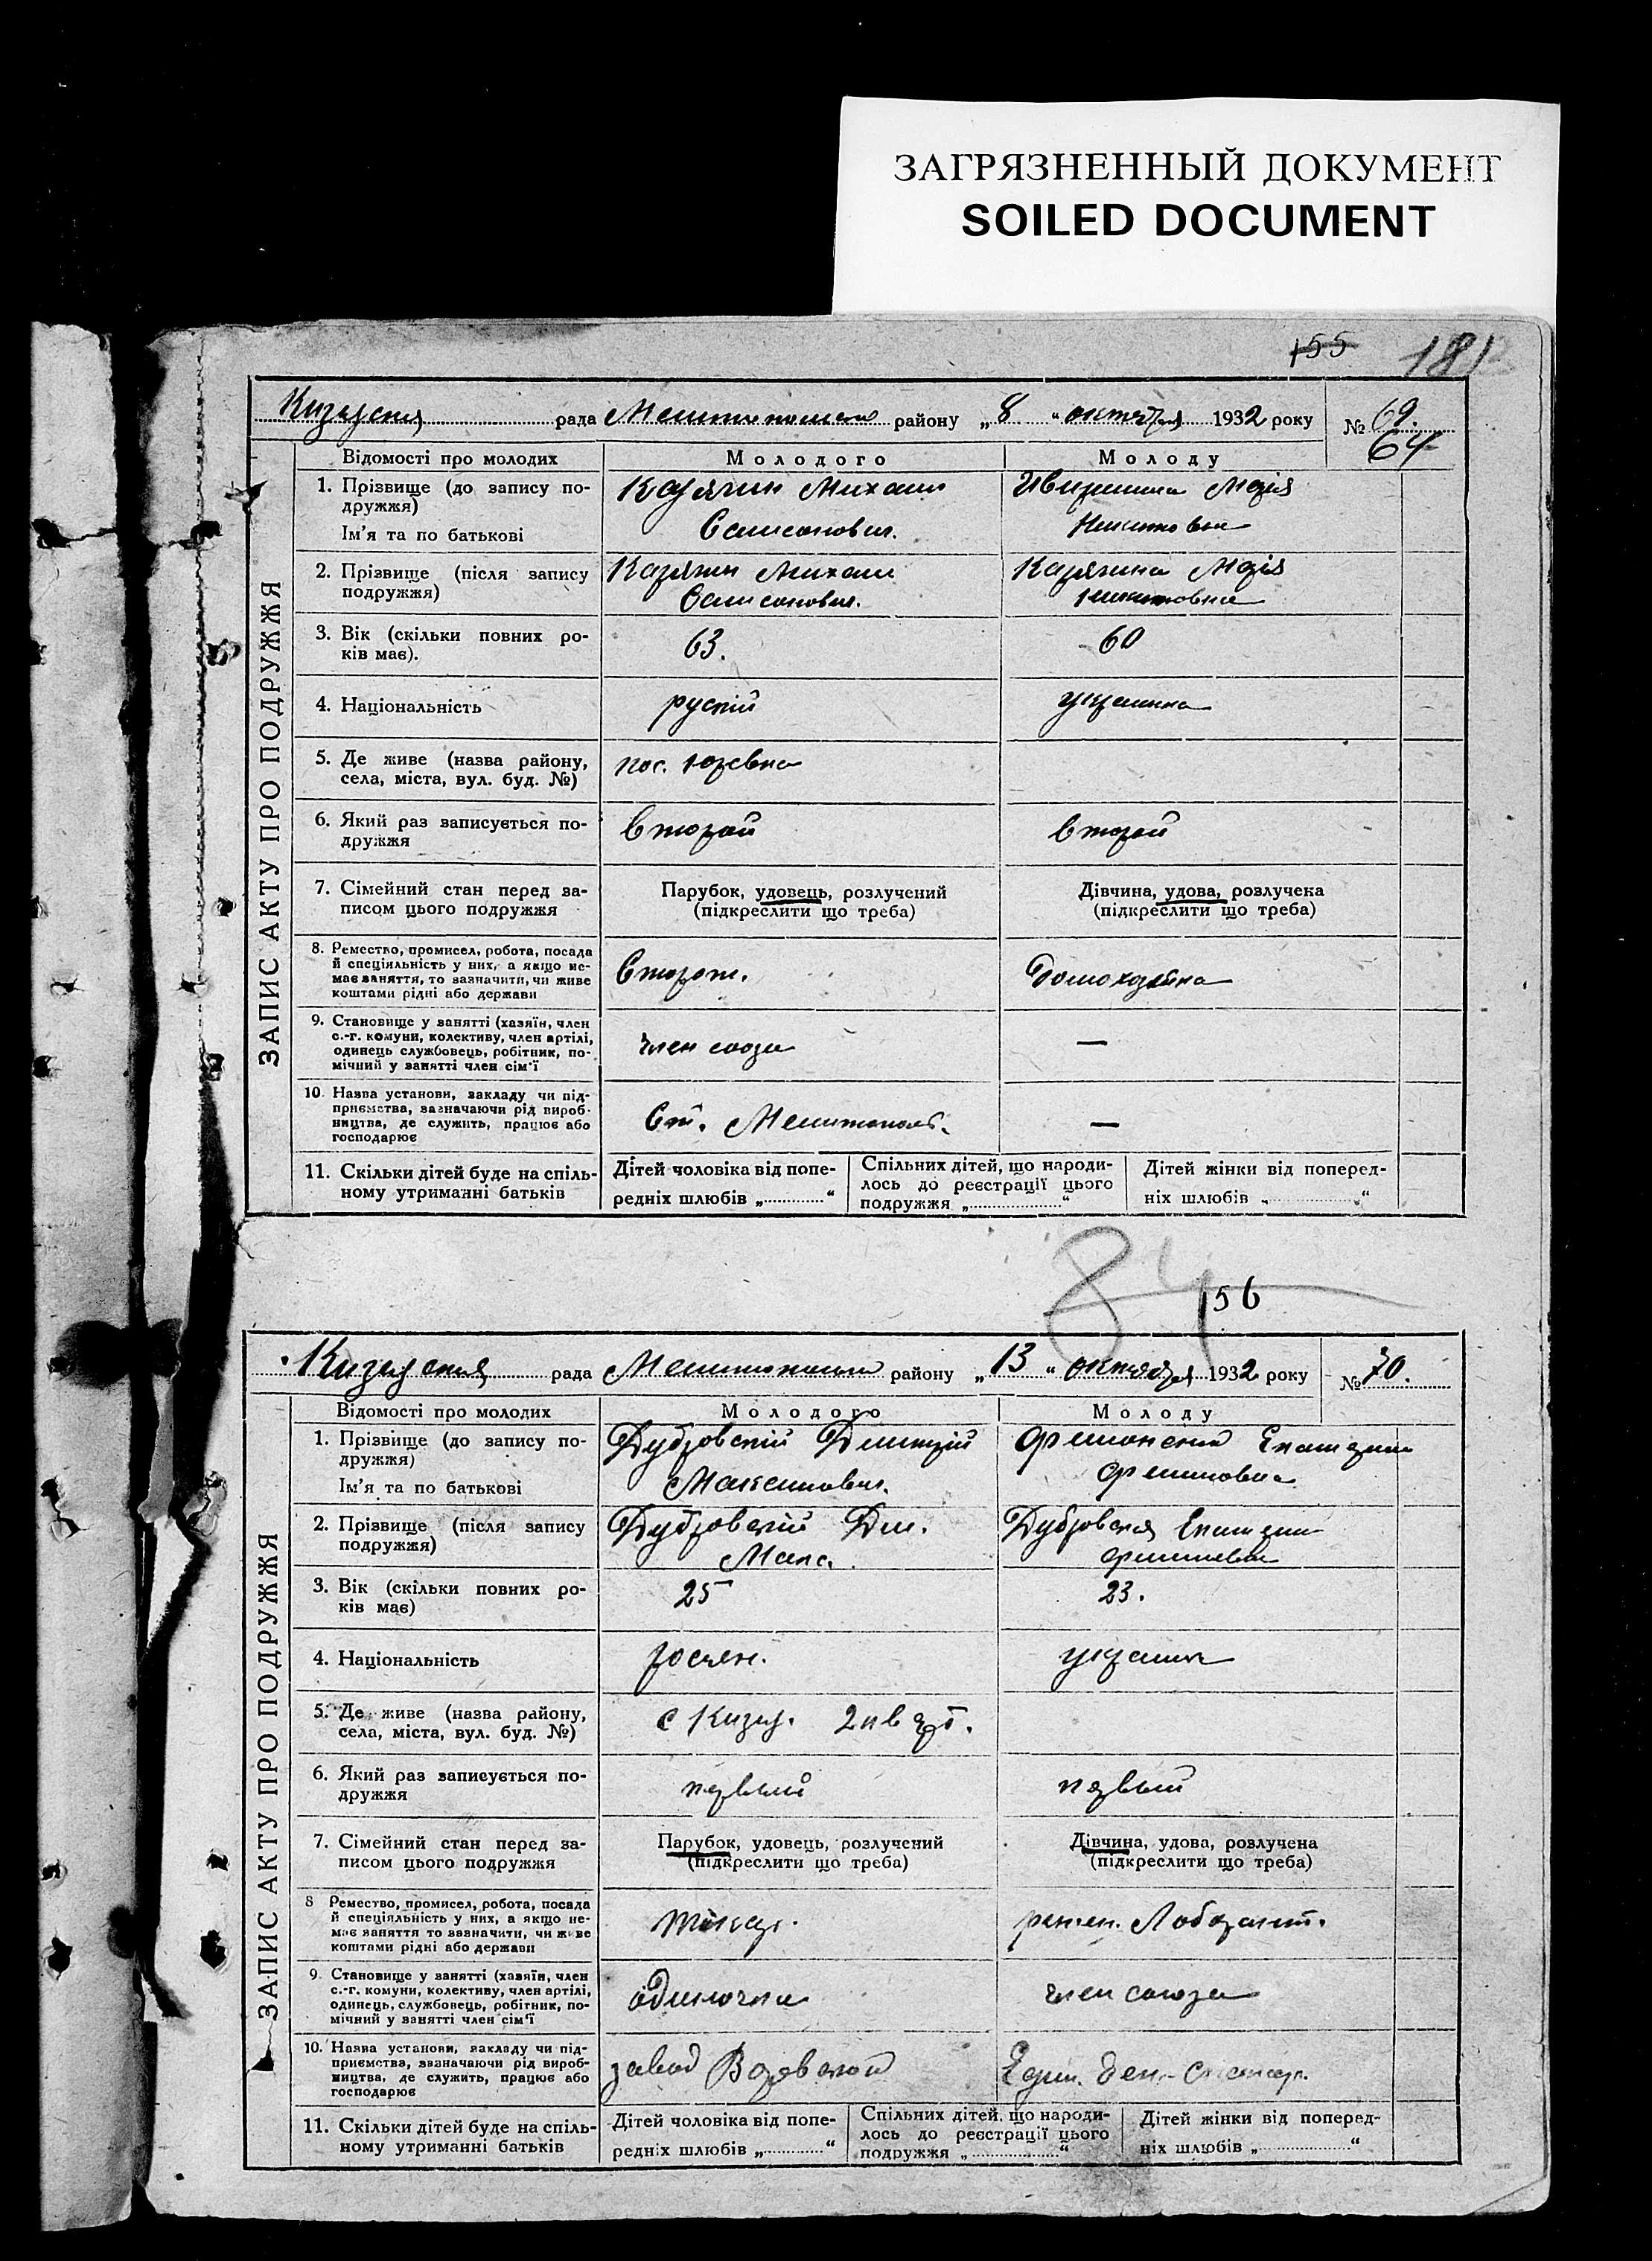 ЗАГРЯЗНЕННЫЙ ДОКУМЕНТ
SOILED DOCUMENT
155 181
рада района „8“ октября 1932 року № 69.
64
ЗАПИС АКТУ ПРО ПОДРУЖЖЯ
Відомості про молодих Молодого Молоду
1. Прізвище (до запису по-
дружжя)
Михаил Мария
Ім'я та по батькові Самсонович. Никитовна
2. Прізвище (після запису
подружжя)
Карякин Михаил Карякина Мария
Самсонович. Никитовна
3. Вік (скільки повних ро-
ків має).
63. 60
4. Національність рускій украинка
5. Де живе (назва району,
села, міста, вул. буд. №)
пос. Юревка
6. Який раз записується по-
дружжя
второй второй
7. Сімейний стан перед за-
писом цього подружжя
Парубок, удовець, розлучений Дівчина, удова, розлучека
(підкреслити що треба) (підкреслити що треба)
8. Ремество, промисел, робота, посада
й спеціяльність у них, а якщо не-
має заняття, то зазначити, чи живе
коштами рідні або держави
Сторож. Домохозяйка
9. Становище у занятті (хазяїн, член
с.-г. комуни, колективу, член артілі,
одинець службовець, робітник, по-
мічний у занятті член сім'ї
член союза —
10. Назва установи, закладу чи під-
приємства, зазначаючи рід вироб-
ництва, де служить, працює або
господарює
Ст. Мелитополь. —
11. Скільки дітей буде на спіль-
ному утриманні батьків
Дітей чоловіка від попе-
редніх шлюбів „ “
Спільних дітей, що народи-
лось до реєстрації цього
подружжя „ “
Дітей жінки від поперед-
ніх шлюбів „ “
84 156
рада району „13“ октября 1932 року № 70.
ЗАПИС АКТУ ПРО ПОДРУЖЖЯ
Відомості про молодих Молодого Молоду
1. Прізвище (до запису по-
дружжя)
Дубровскій Дмитрій Екатерина
Ім'я та по батькові Максимович.
2. Прізвище (після запису
подружжя)
Дубровскій Дм. Дубровская Екатерина
Макс.
3. Вік (скільки повних ро-
ків має)
25 23.
4. Національність росіян. украинка
5. Де живе (назва району,
села, міста, вул. буд. №)
6. Який раз записується по-
дружжя
первый первый
7. Сімейний стан перед за-
писом цього подружжя
Парубок, удовець, розлучений Дівчина, удова, розлучена
(підкреслити що треба) (підкреслити що треба)
8 Ремество, промисел, робота, посада
й спеціяльність у них, а якщо не-
має заняття то зазначити, чи живе
коштами рідні або держави
токар. Лаборант.
9. Становище у занятті (хазяїн, член
с.-г. комуни, колективу, член артілі,
одинець, службовець, робітник, по-
мічний у занятті член сім'ї
одиночка член союза
10. Назва установи, закладу чи під-
приємства, зазначаючи рід вироб-
ництва, де служить, працює або
господарює
завод
11. Скільки дітей буде на спіль-
ному утриманні батьків
Дітей чоловіка від попе-
редніх шлюбів „ “
Спільних дітей, що народи-
лось до реєстрації цього
подружжя „ “
Дітей жінки від поперед-
ніх шлюбів „ “